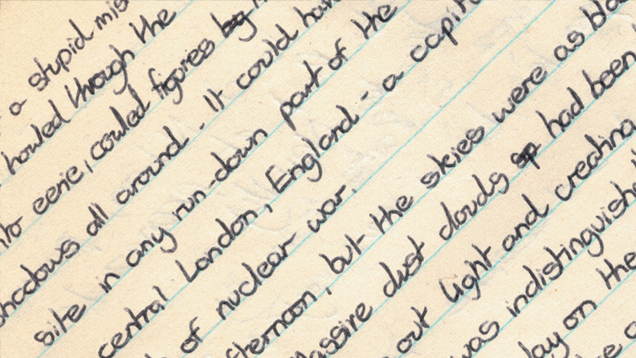 a stupid mis
howled through the
nto eerie, cowled figures by
shadows all around. It could hav
site in any run-down part of the
central London, England - a capit
of nuclear war.
fternoon, but the skies were as bla
assive dust clouds had been
out light and creating
was indistinguish
lay on the